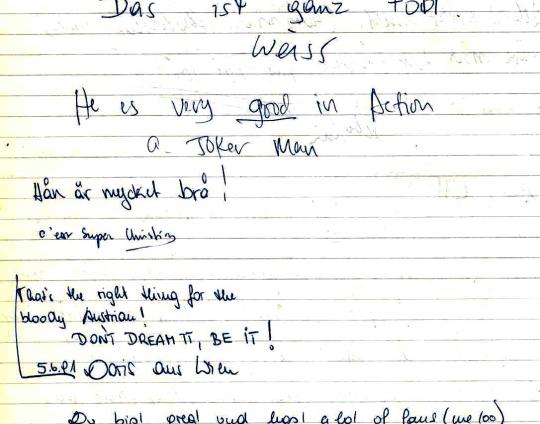 Das ist ganz toll.
Weiss
He is very good in Action
a Joker Man
Hån är mycket brå!
c'est super Christine
That's the right thing for the
bloody Austrian!
DON'T DREAM IT, BE IT!
5.6.91 Doris aus Wien
Du bist great und hast a lot of fans (me too)